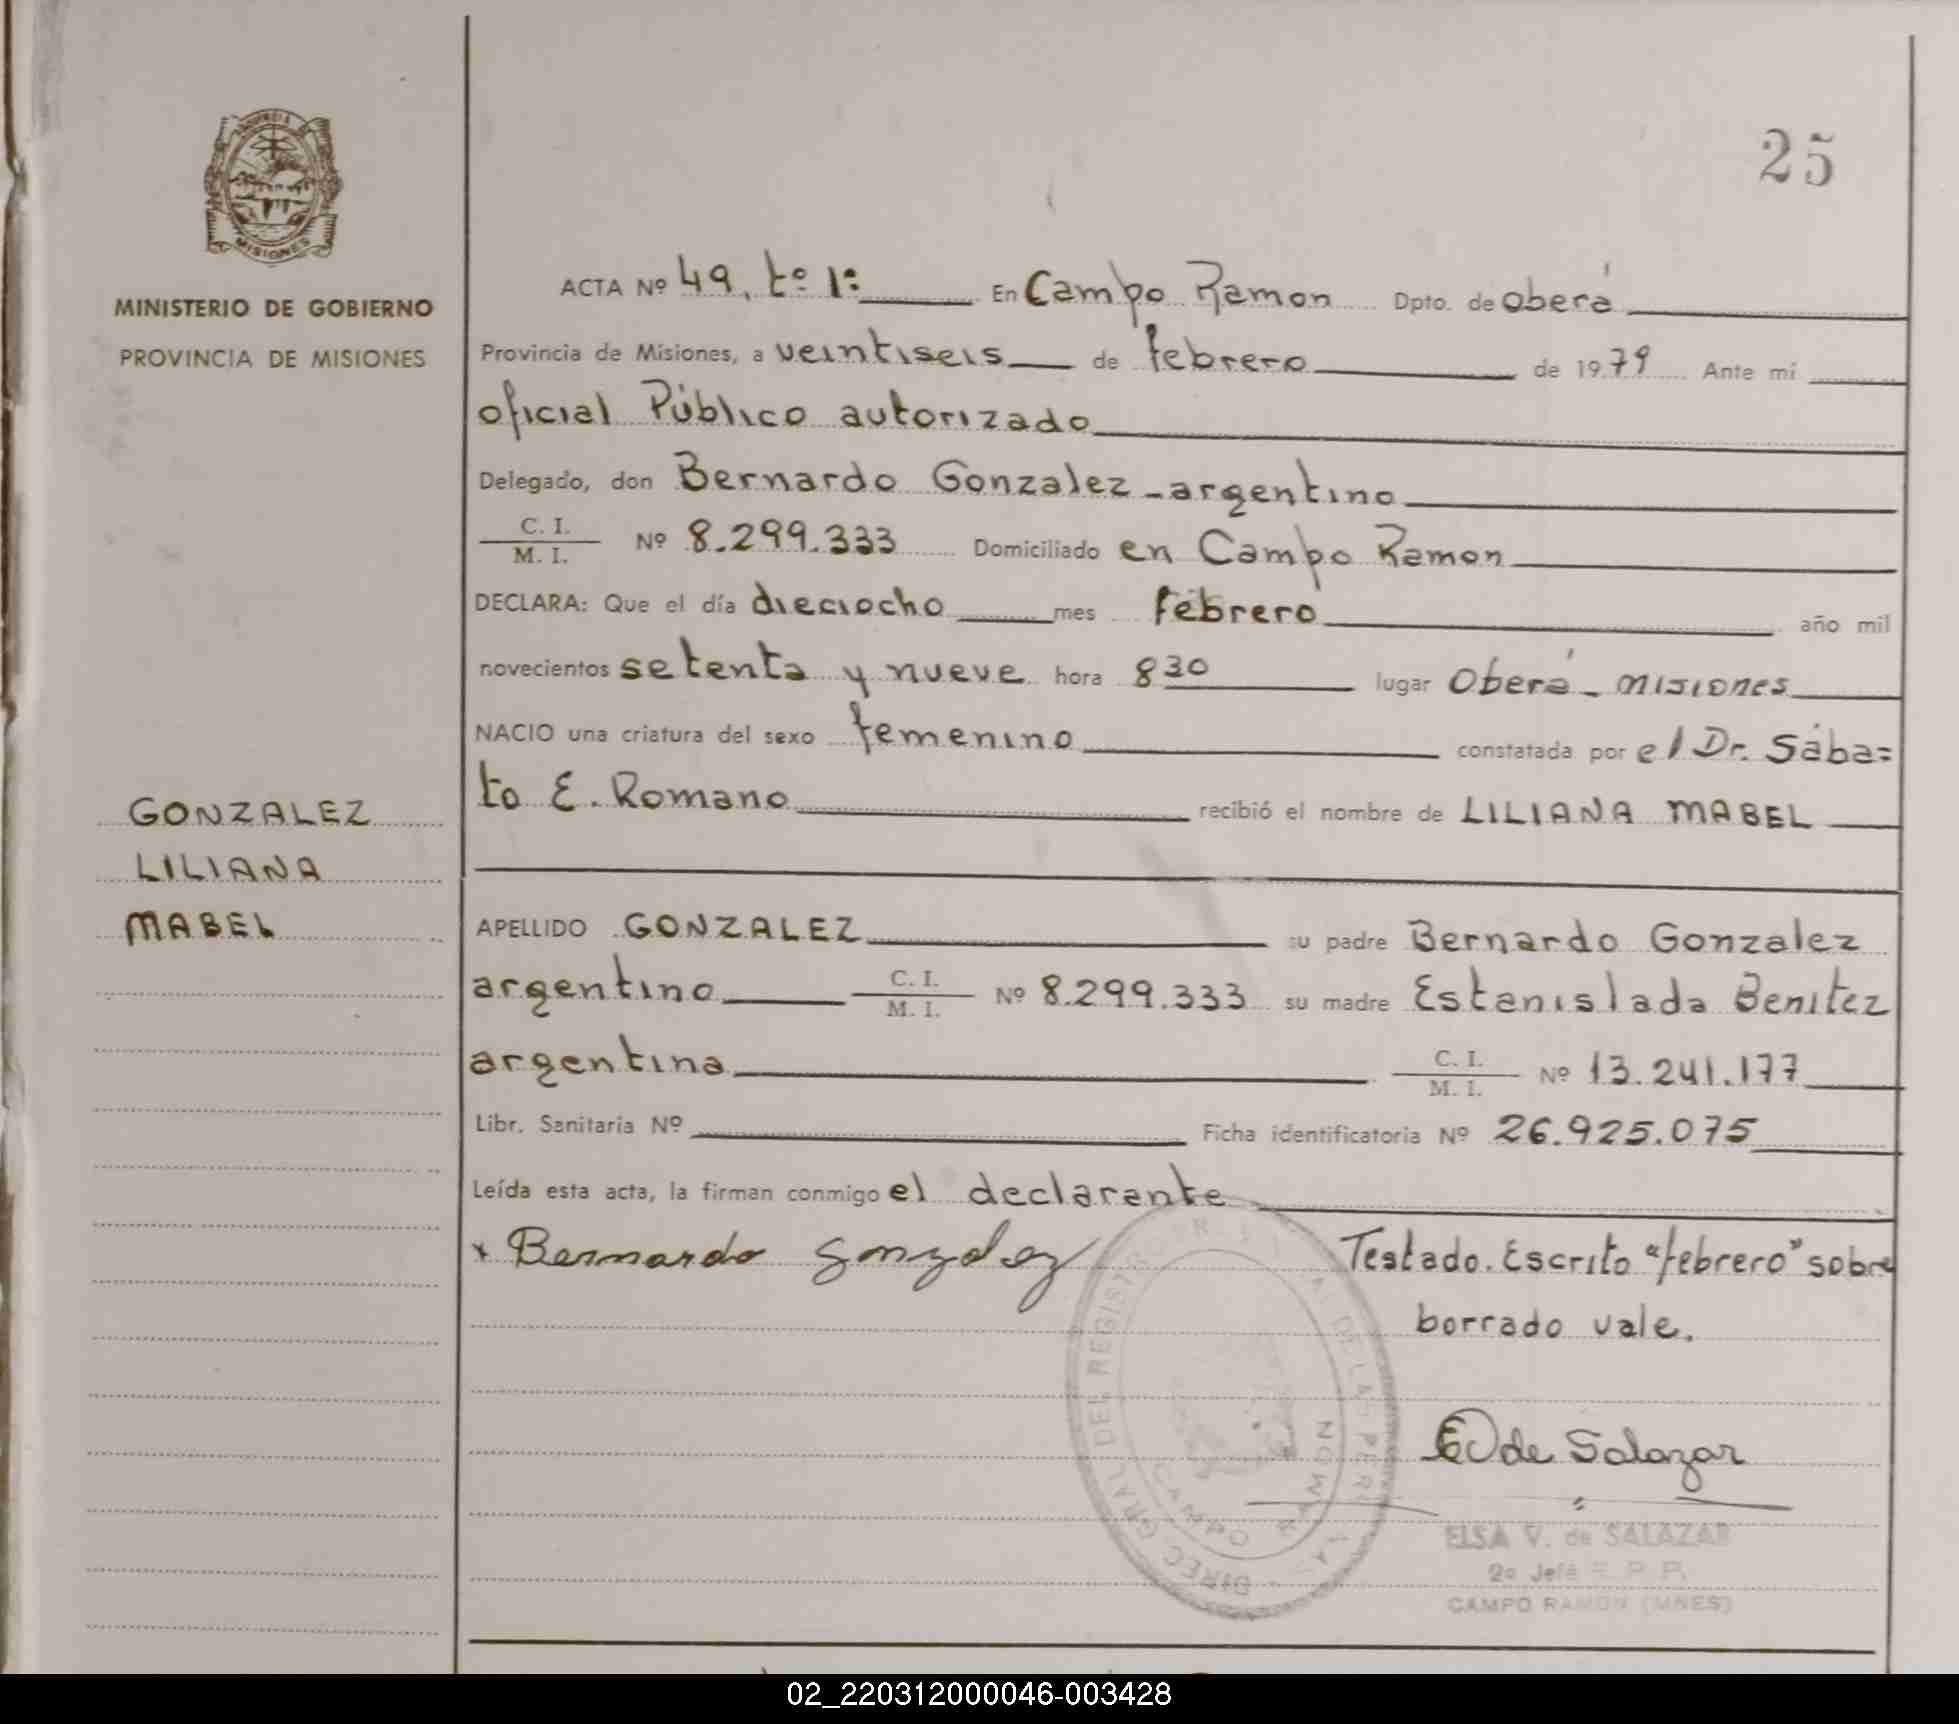 25
MISIONES
MINISTERIO DE GOBIERNO
PROVINCIA DE MISIONES
ACTA Nº 49, tº 1º En Campo Ramon Dpto. de oberá
Provincia de Misiones, a veintiseis de febrero de 1979 Ante mí
oficial Público autorizado
Delegado, don Bernardo Gonzalez - argentino
C. I.
M. I. Nº 8.299.333 Domiciliado en Campo Ramon
DECLARA: Que el día dieciocho mes febrero año mil
novecientos setenta y nueve hora 8 30 lugar Oberá - misiones
NACIO una criatura del sexo femenino constatada por el Dr. Sába=
to E. Romano recibió el nombre de LILIANA MABEL
GONZALEZ
LILIANA
MABEL
APELLIDO GONZALEZ su padre Bernardo Gonzalez
argentino C. I.
M. I. Nº 8.299.333 su madre Estanislada Benitez
argentina C. I.
M. I. Nº 13.241.177
Libr. Sanitaria Nº Ficha identificatoria Nº 26.925.075
Leída esta acta, la firman conmigo el declarante
x Bernardo Gonzalez Testado. Escrito "febrero" sobre
borrado vale.
DIREC GRAL DEL REGISTRO DE LAS
CAMPO RAMON
E V de Salazar
ELSA V. de SALAZAR
2º Jefe R. P. P.
CAMPO RAMON (MNES)
02_220312000046-003428